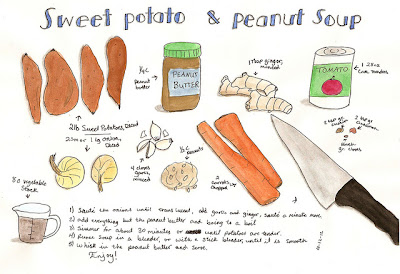 Sweet potato & peanut Soup
¾c
peanut
butter
PEANUT
BUTTER
1 Tbsp ginger,
minced
1 28oz
can tomatoes
TOMATO
2 lb Sweet Potatoes, Diced
onion,
Diced
4 cloves
garlic,
minced
½c
peanuts
2
carrots,
chopped
2 tsp gr.
cumin
2 tsp gr.
cinnamon,
pinch
gr. cloves
vegetable
Stock
1) Sauté the onions until translucent, add garlic and ginger, sauté a minute more
2) add everything but the peanut butter and bring to a boil
3) Simmer for about 30 minutes or until potatoes are tender.
4) Puree Soup in a blender, or with a stick blender, until it is smooth
5) Whisk in the peanut butter and serve.
Enjoy!